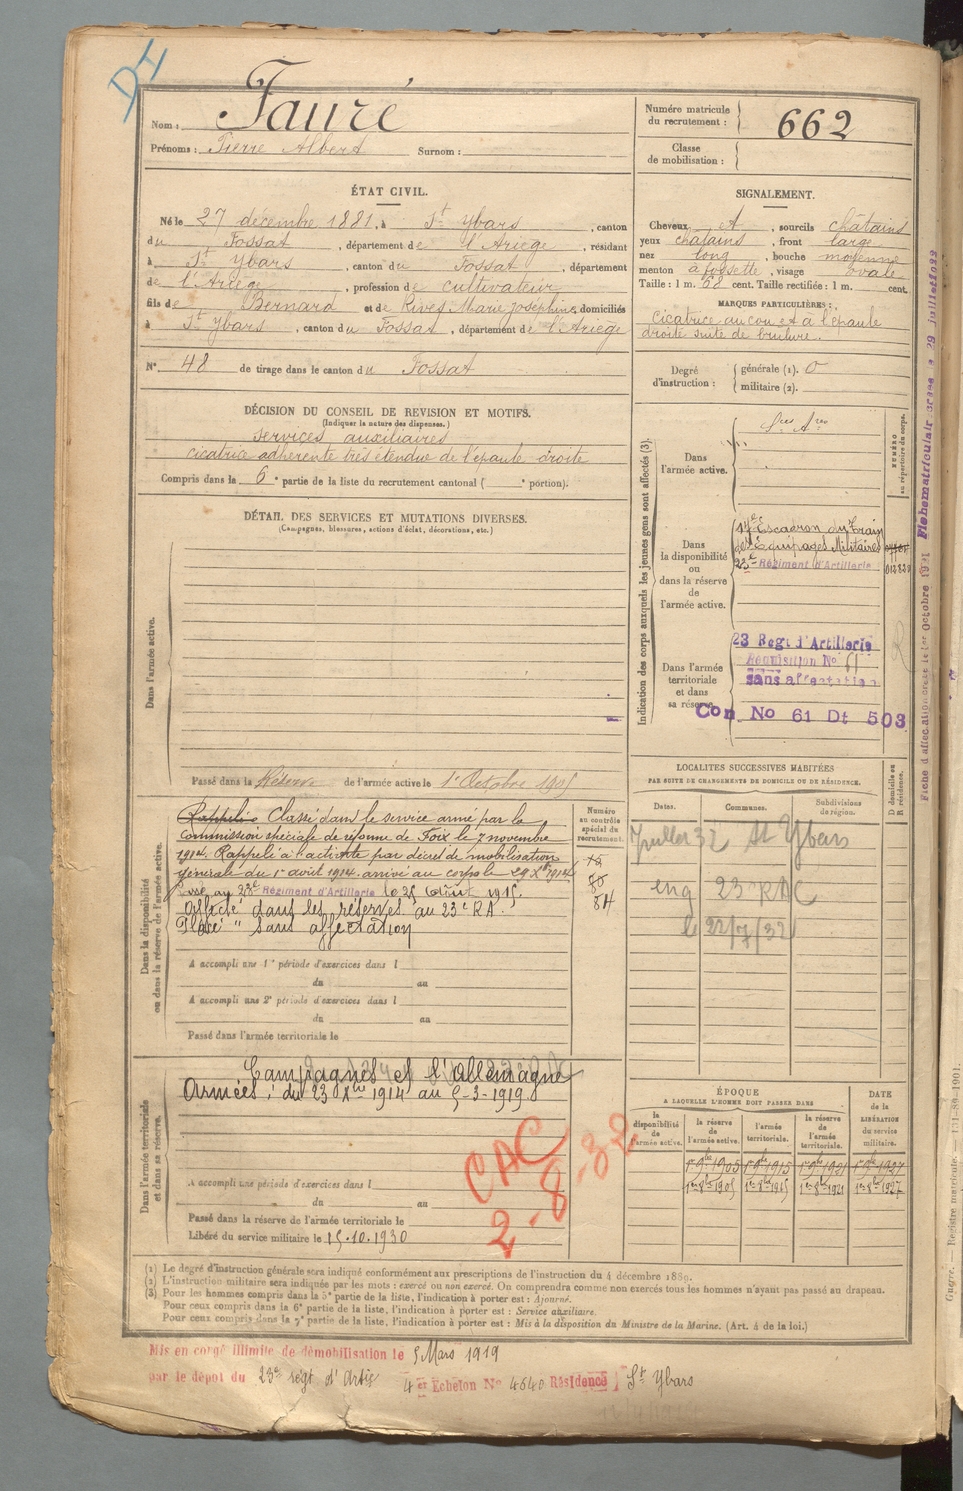 DI
Nom : Fauré
Prénoms : Pierre Albert Surnom :
Numéro matricule du recrutement : 662
Classe de mobilisation :
ÉTAT CIVIL.
Né le 27 décembre 1881, à St Ybars, canton
du Fossat, département de l'Ariège, résidant
à St Ybars, canton du Fossat, département
de l'Ariège, profession de cultivateur
fils de Bernard et de Rives Marie Joséphine, domiciliés
à St Ybars, canton du Fossat, département de l'Ariège
N° 48 de tirage dans le canton du Fossat
SIGNALEMENT.
Cheveux et, sourcils châtains
yeux châtains, front large
nez long, bouche moyenne
menton à fossette, visage ovale
Taille : 1 m. 68 cent. Taille rectifiée : 1 m. cent.
MARQUES PARTICULIÈRES :
Cicatrice au cou et à l'épaule
droite suite de brulure.
Degré d'instruction : générale (1). 0
militaire (2).
DÉCISION DU CONSEIL DE REVISION ET MOTIFS.
(Indiquer la nature des dispenses.)
Services auxiliaires
cicatrice adhérente très étendue de l'épaule droite
Compris dans la 6e partie de la liste du recrutement cantonal ( e portion).
DÉTAIL DES SERVICES ET MUTATIONS DIVERSES.
(Campagnes, blessures, actions d'éclat, décorations, etc.)
Dans l'armée active.
Passé dans la Réserve de l'armée active le 1er Octobre 1905
Indication des corps auxquels les jeunes gens sont affectés (3).
NUMÉRO au répertoire du corps.
Dans l'armée active.
Dans la disponibilité ou dans la réserve de l'armée active.
Escadron du Train
des Équipages Militaires
23e Régiment d'Artillerie
Dans l'armée territoriale et dans sa réserve.
23 Regt d'Artillerie
Réquisition No 61
sans affectation
Con No 61 Dt 503
Dans la disponibilité ou dans la réserve de l'armée active.
Rappelé Classé dans le service armé par la
Commission spéciale de réforme de Foix le 7 novembre
1914. Rappelé à l'activité par décret de mobilisation
générale du 1er août 1914. arrivé au corps le 23 Xbre 1914
Passé au 23e Régiment d'Artillerie le 25 Août 1915.
Affecté dans les réserves au 23e RA.
Placé " sans affectation
Numéro au contrôle spécial du recrutement.
84
A accompli une 1re période d'exercices dans l
du au
A accompli une 2e période d'exercices dans l
du au
Passé dans l'armée territoriale le
LOCALITES SUCCESSIVES HABITÉES
PAR SUITE DE CHANGEMENTS DE DOMICILE OU DE RÉSIDENCE.
Dates. Communes. Subdivisions de région. D domicile ou R résidence.
Juillet 32 St Ybars
23 RAC
le 22/7/32
Dans l'armée territoriale et dans sa réserve.
Campagnes et l'Allemagne
Armées : du 23 Xbre 1914 au 5-3-1919
CAC
2-8-32
A accompli une période d'exercices dans l
du au
Passé dans la réserve de l'armée territoriale le
Libéré du service militaire le 15.10.1930
ÉPOQUE
A LAQUELLE L'HOMME DOIT PASSER DANS
la disponibilité de l'armée active. la réserve de l'armée active. l'armée territoriale. la réserve de l'armée territoriale.
DATE de la LIBÉRATION du service militaire.
1er 9bre 1905 1er 9bre 1915 1er 9bre 1921 1er 9bre 1927
1er 8bre 1905 1er 8bre 1915 1er 8bre 1921 1er 8bre 1927
(1) Le degré d'instruction générale sera indiqué conformément aux prescriptions de l'instruction du 4 décembre 1889.
(2) L'instruction militaire sera indiquée par les mots : exercé ou non exercé. On comprendra comme non exercés tous les hommes n'ayant pas passé au drapeau.
(3) Pour les hommes compris dans la 5e partie de la liste, l'indication à porter est : Ajourné.
Pour ceux compris dans la 6e partie de la liste, l'indication à porter est : Service auxiliaire.
Pour ceux compris dans la 7e partie de la liste, l'indication à porter est : Mis à la disposition du Ministre de la Marine. (Art. 4 de la loi.)
Mis en congé illimité de démobilisation le 5 Mars 1919
par le dépôt du 23e régt d'Artie 4e Echelon No 4640 Résidence St Ybars
Registre matricule.